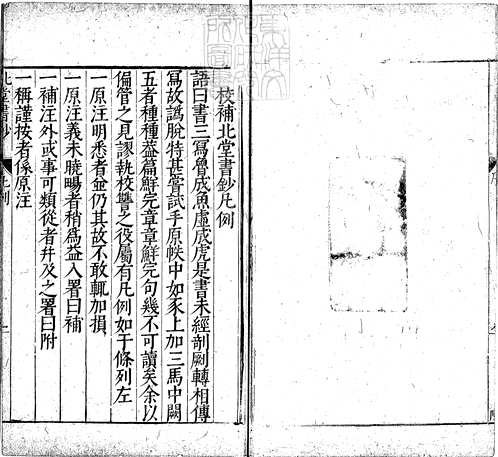 校補北堂書鈔凡例
語曰書三寫魯成魚虛成虎是書未經剞劂轉相傳
寫故譌脫特甚嘗試手原帙中如豕上加三馬中闕
五者種種葢篇鮮完章章鮮完句幾不可讀矣余以
偏管之見謬執校讐之役屬有凡例如干條列左
一原注明悉者並仍其故不敢輒加損
一原注義未曉暢者稍為益入署曰補
一補注外或事可類從者幷及之署曰附
一稱謹按者係原注
北堂書鈔 凡例